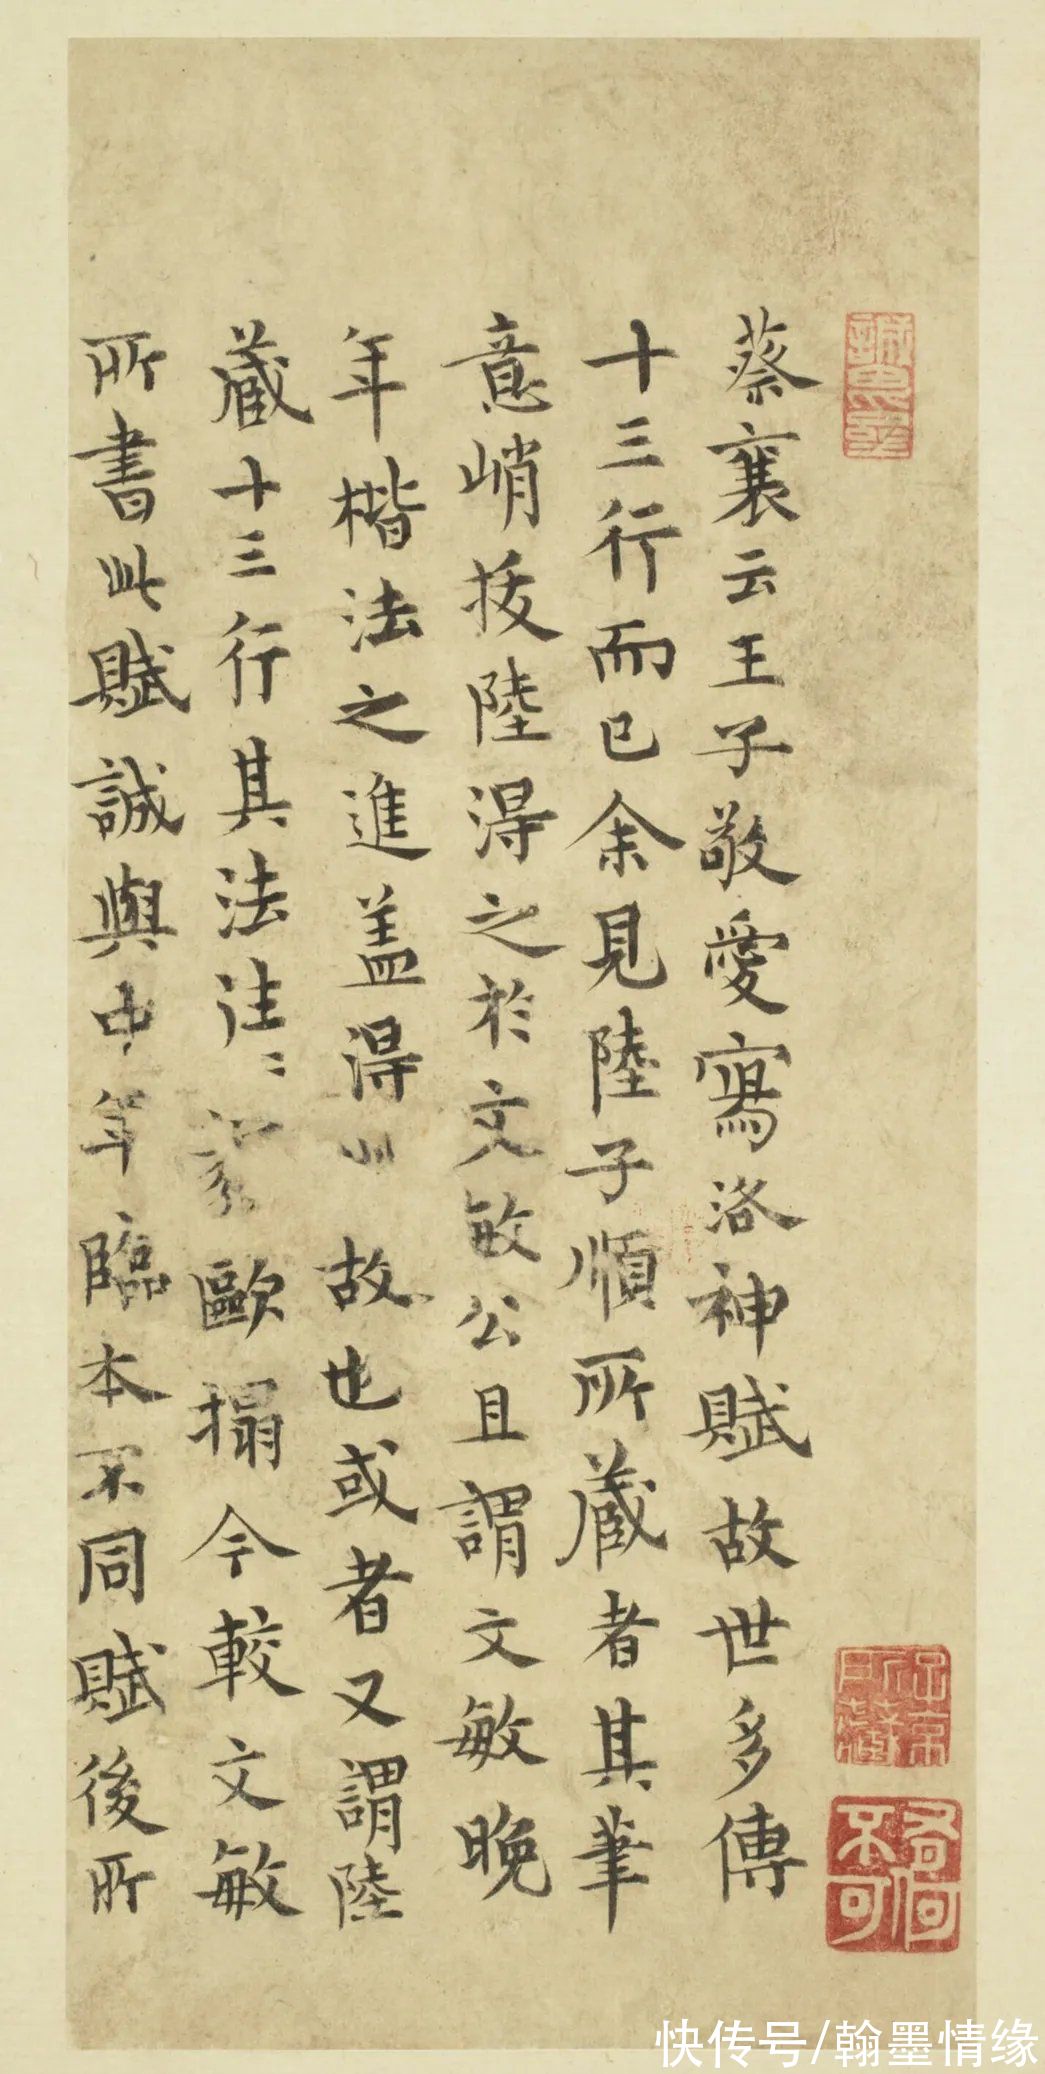 蔡襄云王子敬愛寫洛神賦故世多傳
十三行而已余見陸子順所藏者其筆
意峭拔陸得之於文敏公且謂文敏晚
年楷法之進盖得此故也或者又謂陸
藏十三行其法往〻歐搨今較文敏
所書此賦誠與中年臨本不同賦後所
有何不可
快传号/翰墨情缘